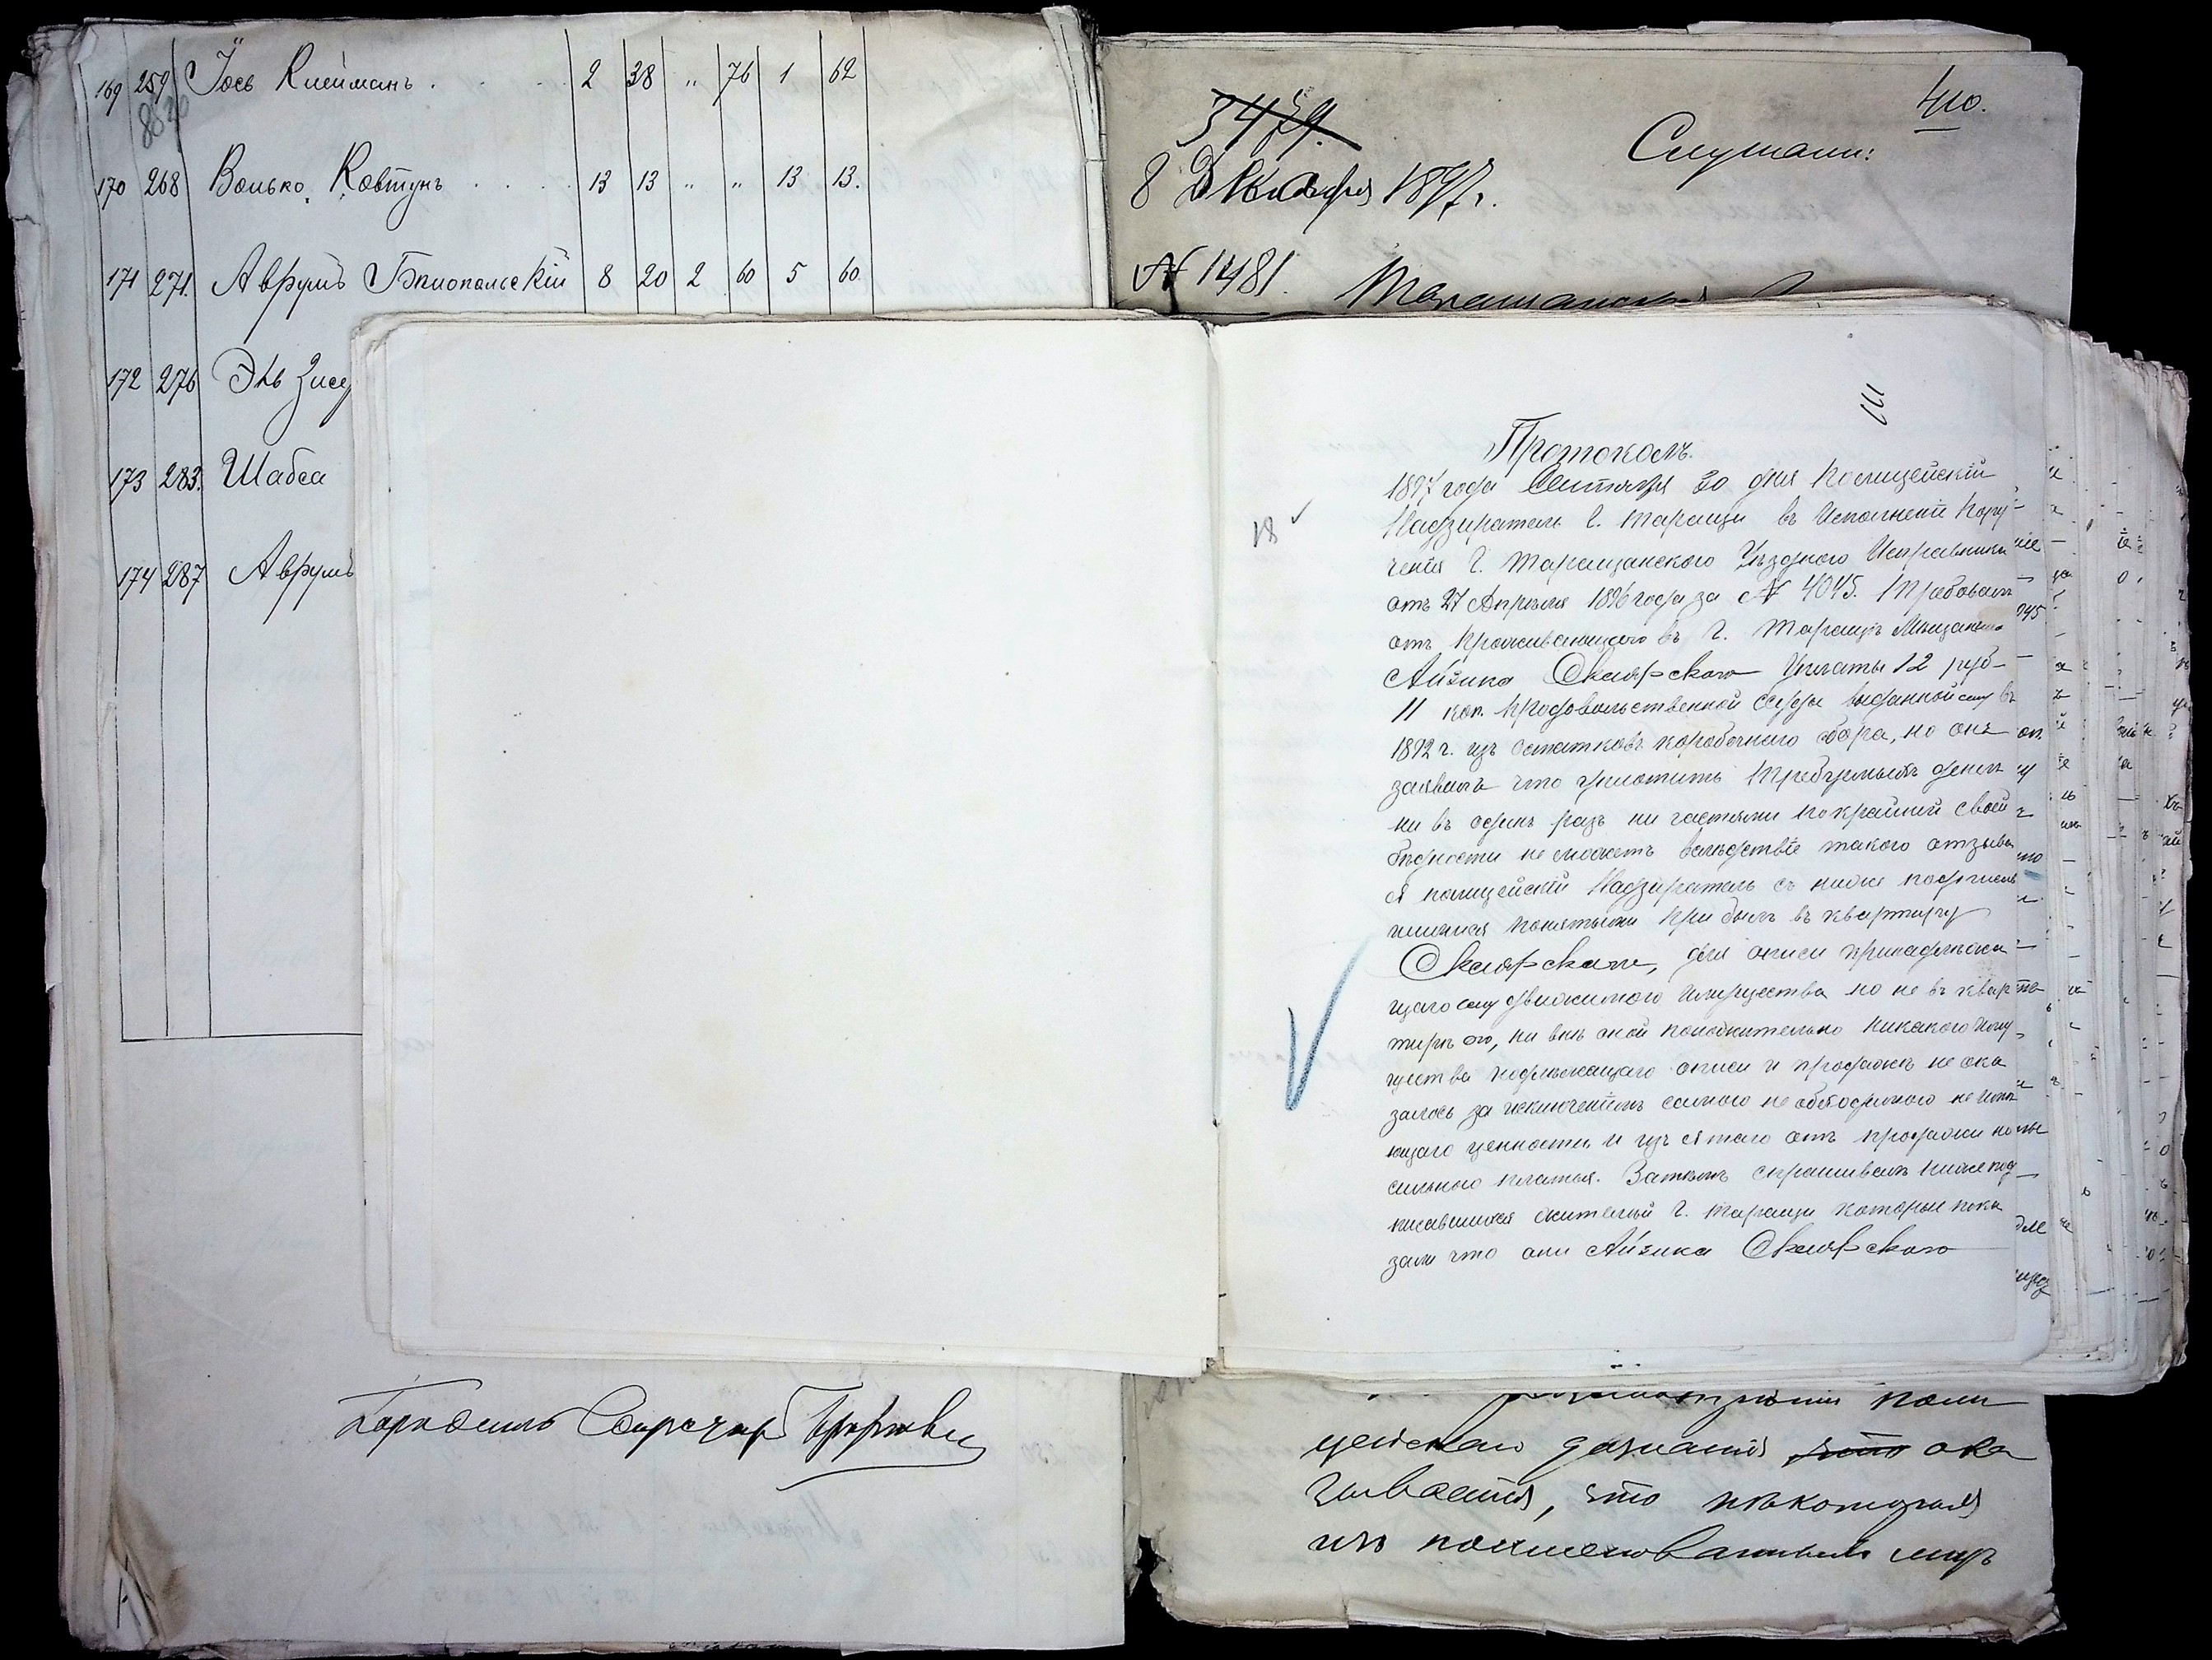 169 259 Іось Клейманъ . . . 2 38 " 76 1 62
8820
170 268 Волько Ковтунъ . . . . 13 13 " " 13 13.
171 271. Аврумъ Бѣлопольскій 8 20 2 60 5 60
172 276 Эль Зисе
173 283. Шабса
174 287 Аврумъ
Городской
410.
3479.
Слушали:
8 Декабря 1897 г.
№ 1481. Таращанская
111
Протоколъ.
18 ✓
1897 года Сентября 30 дня Полицейскій
Надзиратель г. Таращи въ исполненіе пору-
ченія г. Таращанского Уѣздного Исправника
отъ 27 Апрѣля 1896 года за № 4045. Требовалъ
отъ проживающего въ г. Таращѣ Мѣщанина
Айзика Склярского уплаты 12 руб-
11 коп. продовольственной ссуды выданной ему въ
1892 г. изъ остатковъ коробочного сбора, но онъ
заявилъ что уплотить требуемыхъ денегъ
ни въ одинъ разъ ни частями по крайней своей
бѣдности не можетъ вслѣдствіе такого отзыва
я полицейскій Надзиратель съ ниже подписав
шимися понятыми прибылъ въ квартиру
Склярского, для описи принадлежа-
щаго ему движимого имущества но не въ квар
тирѣ его, ни внѣ оной положительно никакого иму-
щества подлежащаго описи и продажѣ не ока
залось за исключеніемъ самого необходимого не имѣ
ющаго ценности и изъятого отъ продажи но
сильного платья. Затѣмъ спрашивалъ нижепод-
писавшихся жителей г. Таращи которые пока
зали что они Айзика Склярского
поли
цейскаго дознанія что ока
зывается, что нѣкоторыя
изъ поименованныхъ лицъ